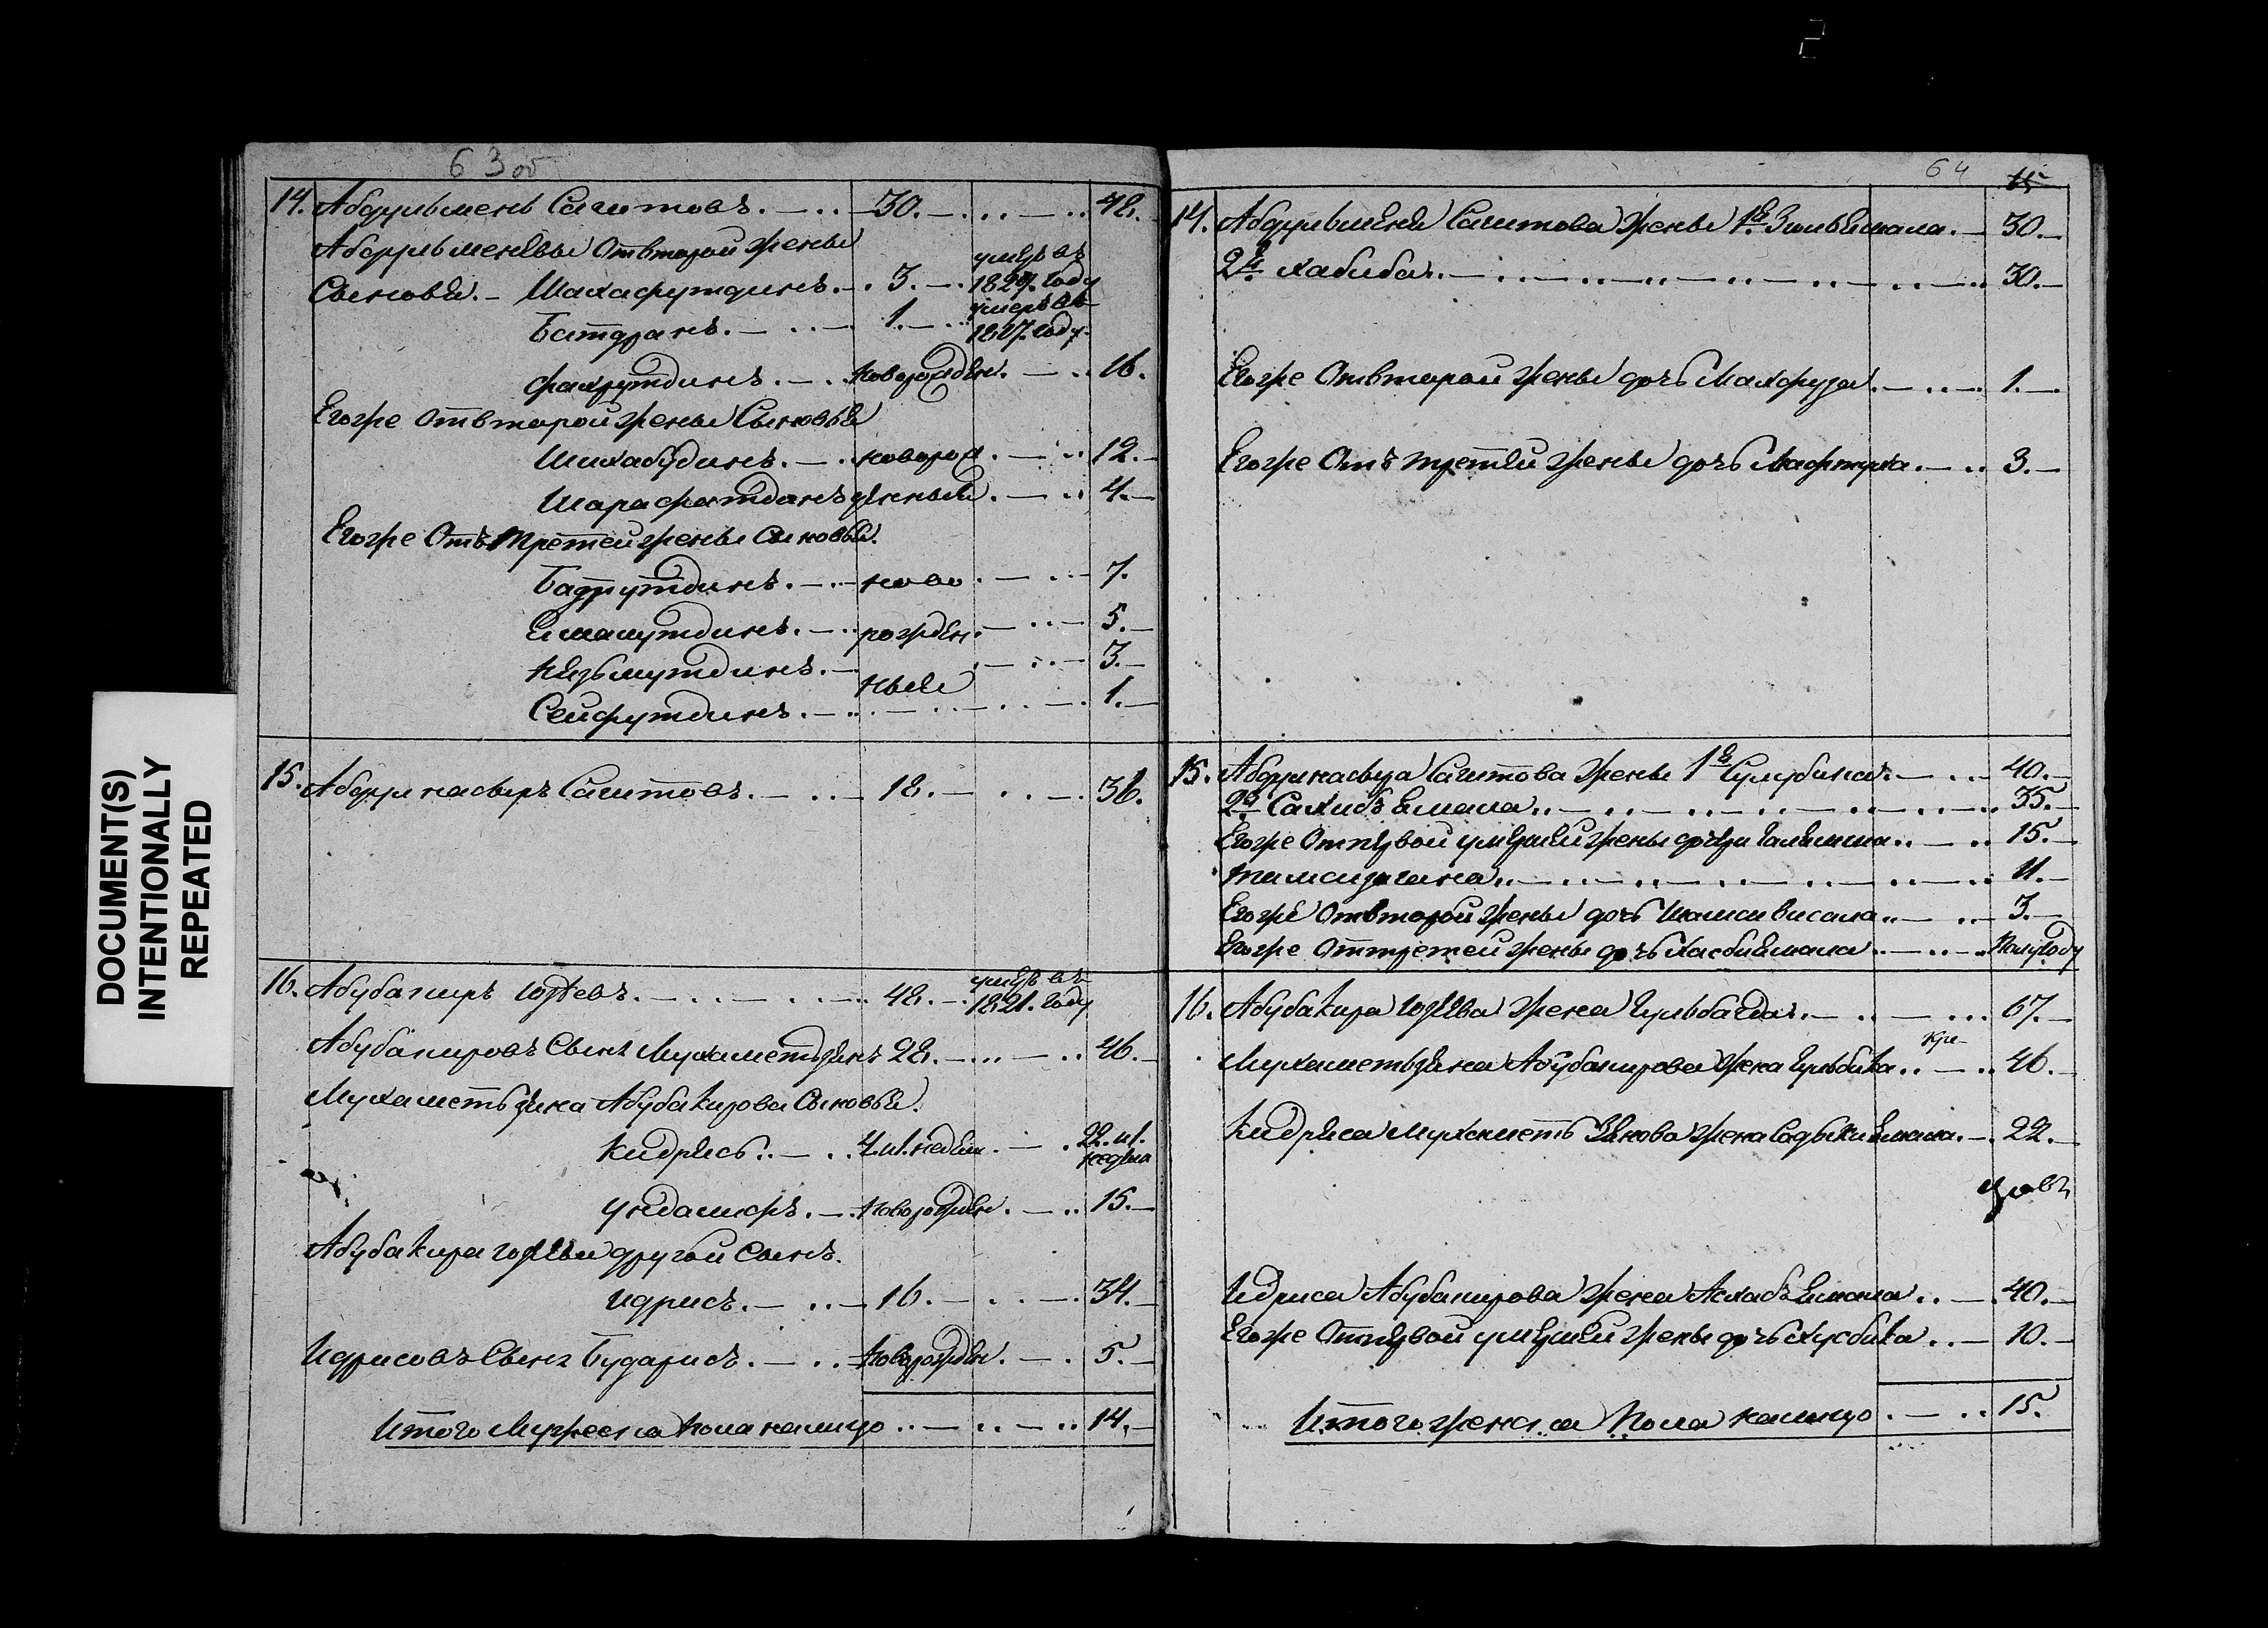 DOCUMENT(S)
INTENTIONALLY
REPEATED
63 об
14. Абдулъмень Сагитовъ. 30. 48.
Абдулъменевы Отвторой жены
Сыновья. Шахафутдинъ. 3. умеръ въ 1829. году
Батдранъ. 1. умеръ въ 1827. году
Фахрутдинъ. новорожден. 16.
Егоже отвторой жены Сыновья
Шихабудинъ. новорож 12.
Шарафатдинъ денныи 4.
Егоже Отъ третей жены Сыновья.
Бадрутдинъ. ново 7.
Емамутдинъ. рожден. 5.
Незьмутдинъ. ныи 3.
Сейфутдинъ. 1.
15. Абдулнасыръ Сагитовъ. 18. 36.
16. Абубакиръ 48. умеръ въ 1821. году
Абубакировъ Сынъ Мухаметьзянъ 28. 46.
Мухаметьзяна Абубакирова Сыновья.
Кидрясъ. 4. недели. 22. недели
новорожден 15.
Абубакира другой Сынъ.
Идрисъ. 16. 34.
Идрисовъ Сынъ Бударисъ. Новорожден. 5.
Итого Мужеска пола налицо 14.
64
14. Абдулъменя Сагитова жены 1я Зюльбемала. 30.
2я хабиба. 30.
Егоже Отвторой жены дочь Махфуза. 1.
Егоже Отъ третей жены дочь 3.
15. Абдулнасыра Сагитова жены 1я Сулубика. 40.
2я Сахибъ Емала. 35.
Егоже Отпервой умершей жены дочери 15.
11.
Егоже Отвторой жены дочь 3.
Егоже Оттретей жены дочь Хасбиемала. Полугоду
16. Абубакира жена Гульбагда. 67.
Мухаметьзяна Абубакирова жена Гульбика 46.
Кидряса Мухаметь Зянова жена Садыкиемала. 22.
Идриса Абубакирова жена Асхабъ Емала 40.
Егоже Отпервой умершей жены дочь Хусбика 10.
Итого женска Пола налицо 15.